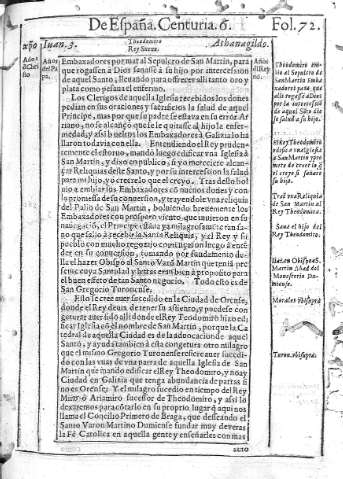 De España. Centuria. 6. Fol. 72.
Iuan. 3. Theodomiro Athanagildo.
Rey Suevo.
Embaxadores por mar al Sepulcro de San Martin, para
que rogassen a Dios sanasse à su hijo por intercession
de aquel Santo, llevando para ofrecer alli tanto oro, y
plata como pesava el enfermo.
Los Clerigos de aquella Iglesia recebidos los dones
pedian en sus oraciones y sacrificios la salud de aquel
Principe, mas porque su padre se estava en su error
no se alcançò que le quitasse al hijo la enfer
medad, y assi bueltos los Embaxadores à Galizia lo ha
llaron todavia con ella. Entendiendo el Rey prudente
mente el misterio, mandò luego edificar una Iglesia à
San Martin, y dixo en publico, si yo mereciere alcançar
Reliquias deste Santo, y por su intercession la salud
para mi hijo, yo creerè lo que el creyo. Tras desto bol
vio a embiar los Embaxadores cō muchos dones y con
la promessa de su conversion, y trayendole una reliquia
del Palio de San Martin, bolviendo brevemente los
Embaxadores con prospero viento, que tuvieron en su
navegaciō, el Principe estava ya milagrosamente tan sa
no que saliò à recebir la Santa Reliquia, y el Rey y su
pueblo con mucho regozijo començaron luego à enten
der en su conversion, tomando por fundamento de
lla el hazer Obispo al Santo Varō Martin que tenia pre
sente cuya santidad y letras eran bien à proposito para
el buen efeto de tan Santo negocio. Todo esto es de
San Gregorio Turonense.
Esto se cree aver sucedido en la Ciudad de Orense,
donde el Rey devia de tener su asiento, y puedese con
geturar aver sido alli donde el Rey Teodomiro hizo edi
ficar Iglesia en el nombre de San Martin, porque la Ca
tedral de aquella Ciudad es de la advocacion de aquel
Santo, y ayuda tambien à esta congetura otro milagro
que el mismo Gregorio Turonense escrive aver sucedi
do con las uvas de una parra de aquella Iglesia de San
Martin que mandò edificar el Rey Theodomiro, y no ay
Ciudad en Galizia que tenga abundancia de parras si
no es Orense. Y el milagro sucediò en tiempo del Rey
Miro ò Ariamiro sucessor de Theodomiro, y assi lo
dexaremos para contarlo en su proprio lugar à qui nos
llama el Concilio Primero de Braga, que desseando el
Santo Varon Martino Dumiense fundar muy deveras
la Fè Catolica en aquella gente y enseñarles con mas
Theodomiro embia
al Sepulcro de
San Martin Emba
xadores para que
alli roguen à Dios
por la intercessiō
de aquel Santo de
la salud a su hijo.
El Rey Theodomiro
edifica una Iglesia
à San Martin y pro
mete de creer lo q̃
el creyo si sanare
su hijo.
Traē una Reliquia
de San Martin al
Rey Theodomiro.
Sana el hijo del
Rey Theodomiro.
Hazen Obispo à S.
Martin Abad del
Monasterio Du
miense.
Morales
Turon.